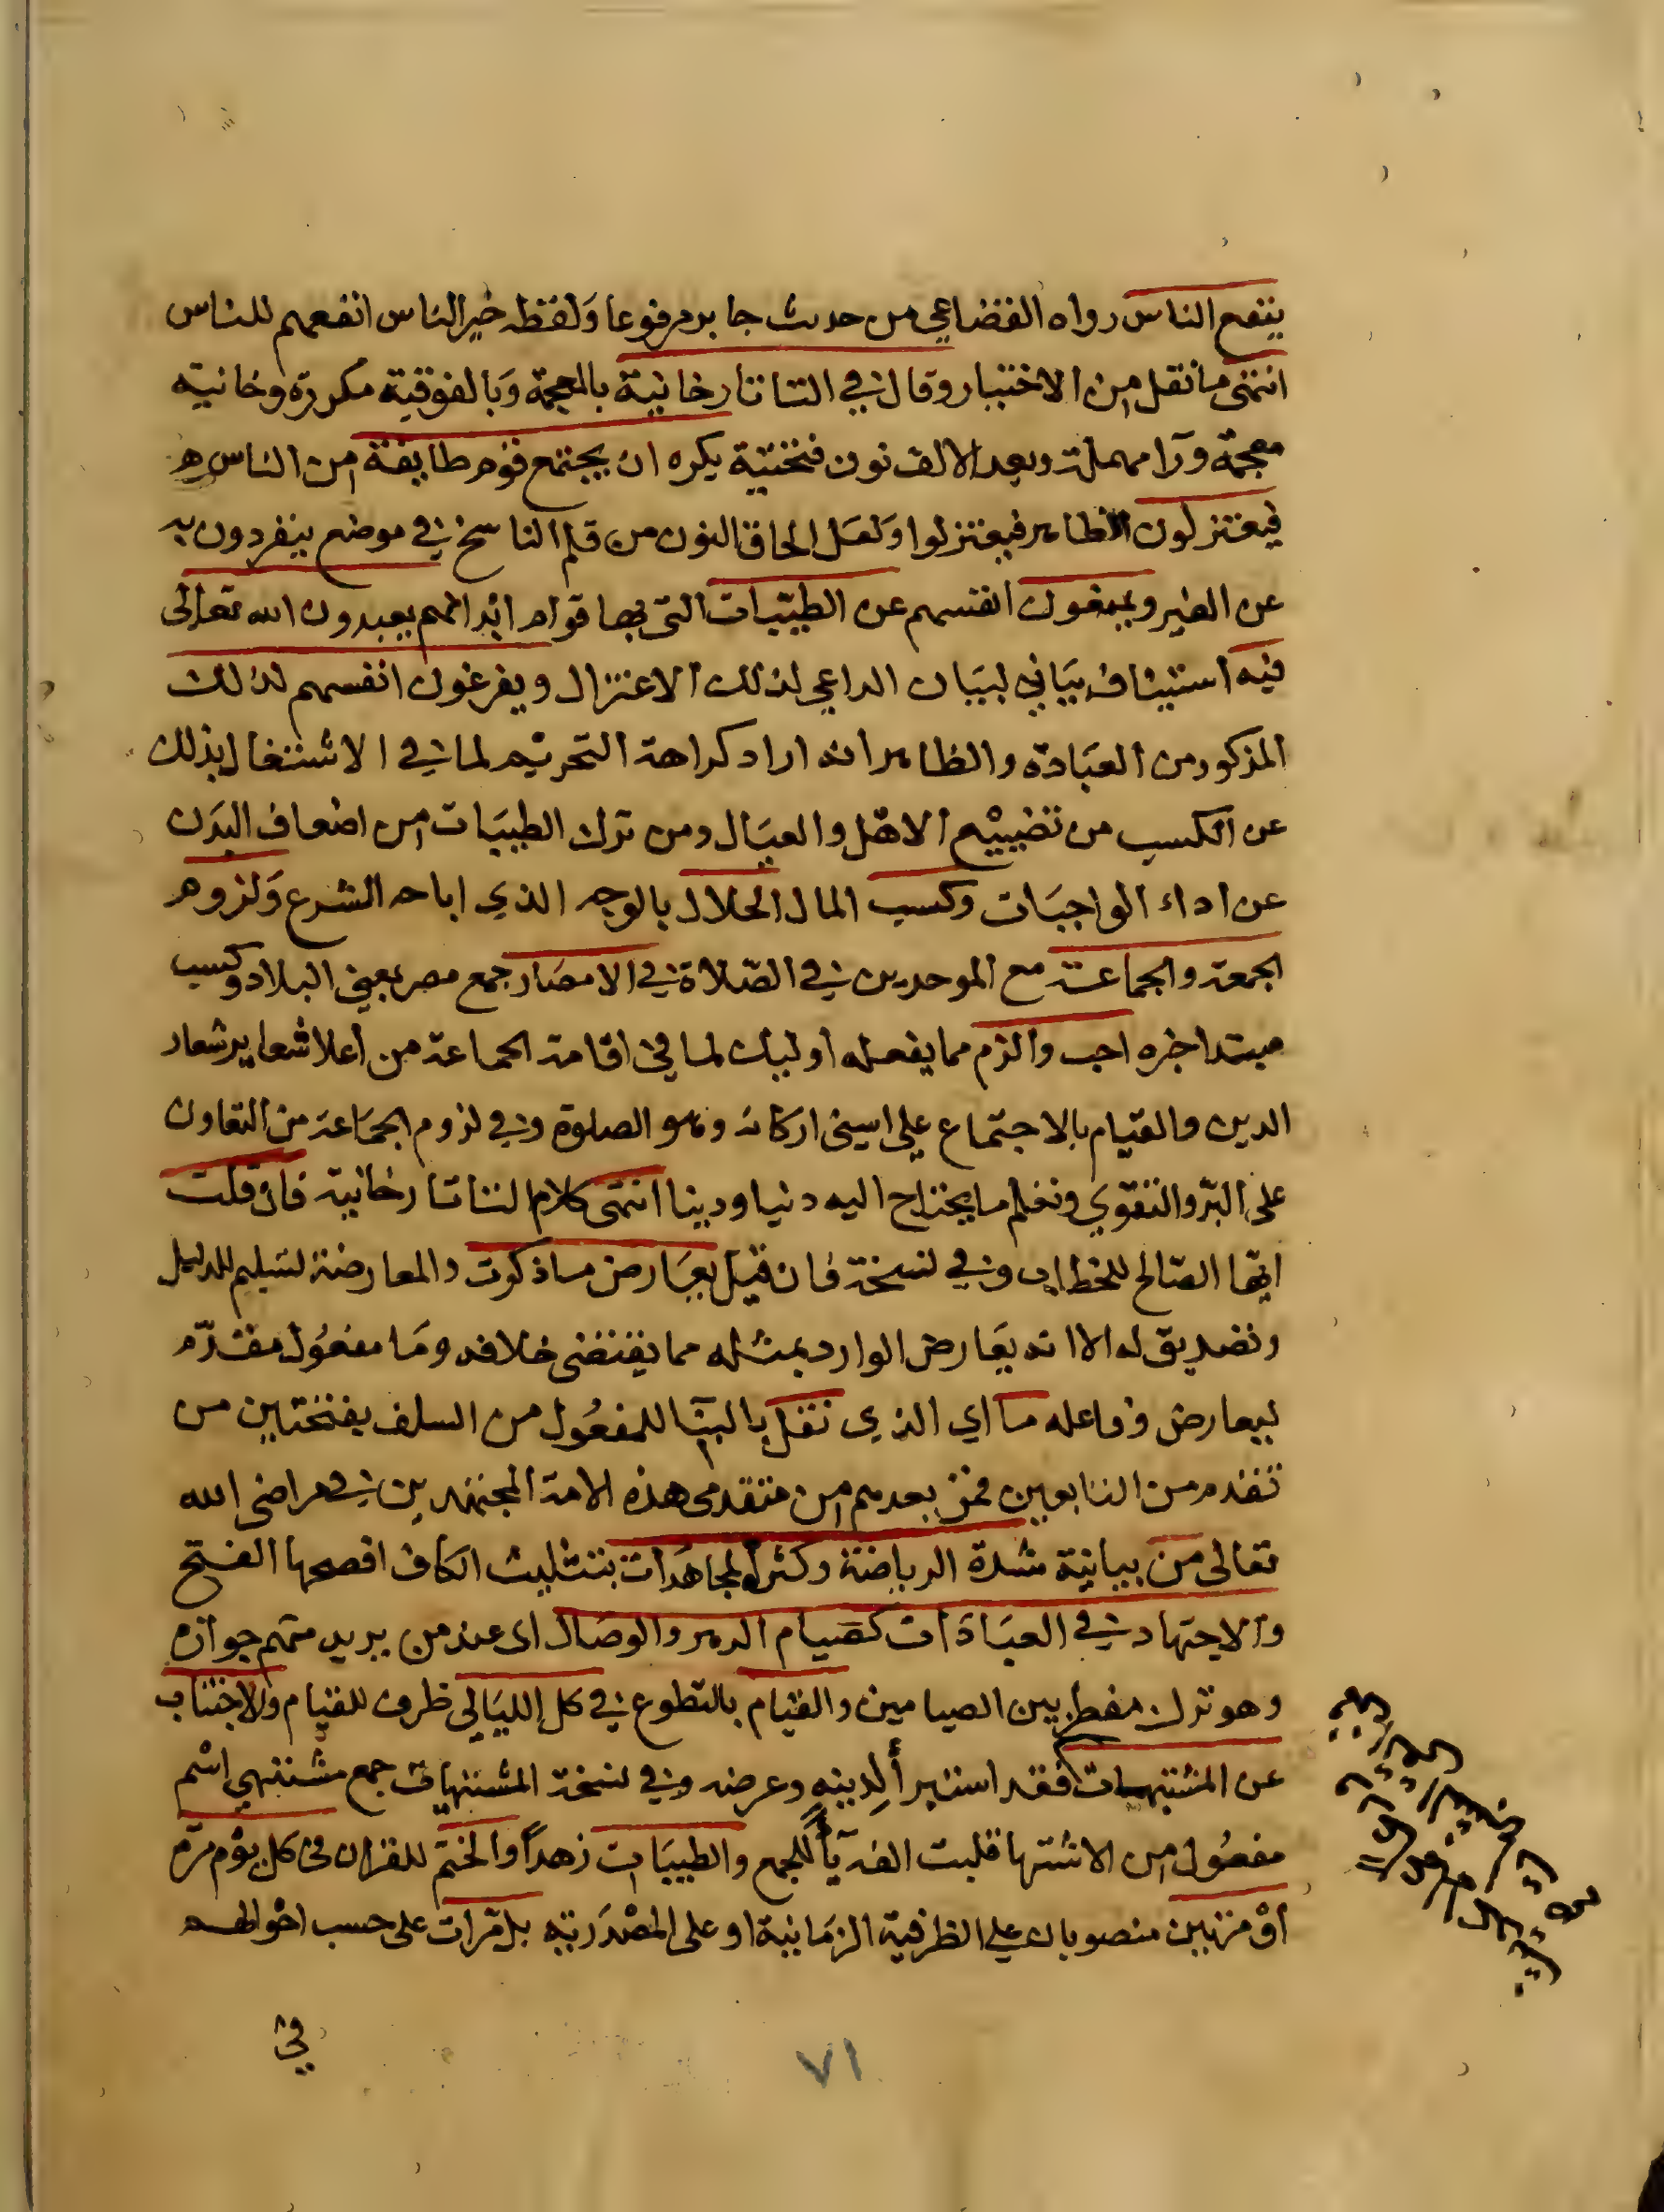 ينفع الناس رواه القضاعي من حديث جابر مرفوعا وَلفظه خير الناس انفعهم للناس
انتهى ما نقل من الاختيار وقال في التاتارخانية بالمعجمة وَبالفوقية مكررة وخانية
معجمة ورا مهملة وبعد الالف نون فتحتية يكره ان يجتمع قوم طايفة من الناس
فيعتزلون الظاهر فيعتزلوا وَلعَل الحاق النون من قلم الناسخ في موضع ينفردون به
عن الغير ويمنعون انفسهم عن الطيّبات التي بها قوام ابدانهم يعبدون الله تعالى
فيه استيناف بيَاني لبيَان الداعي لذلك الاعتزال ويفرغون انفسهم لذلك
المذكور من العبَادة والظاهر انه اراد كراهة التحريم لما في الاشتغال بذلك
عن الكسب من تضييع الاهل والعيَال ومن ترك الطيبَات من اضعاف البدَن
عن اداء الواجبَات وكسب المال الحلال بالوجه الذي اباحه الشرع وَلزوم
الجمعة والجماعة مع الموحدين في الصّلاة في الامصَار جمع مصر بمعني البلاد وكسب
مبتدا خبره احب والزم مما يفعله اوليك لما في اقامة الجماعة من أعلا شعاير شعار
الدين والقيام بالاجتماع علي اسني اركانه وهو الصلوة وفي لزوم الجمَاعة من التعاون
على البرّ والتقوي وتعلم ما يحتاج اليه دنيا ودينا انتهى كلام التاتارخانية فان قلت
ايّها الصّالح للخطاب وفي نسخة فان قيل يعَارض ما ذكرت والمعارضة تسليم للدليل
وتصديق له الا انه يعَارض الوارد بمثله مما يقتضي خلافه ومَا مفعُول مقدّم
ليعارض وفاعله ما اي الذي نقل بالبنآ للمفعُول من السلف بفتحتين من
تقدم من التابعين فمن بعدهم من متقدمى هذه الامة المجتهدين في مراضي الله
تعالى من بيانية شدة الرياضة وكثرة المجاهَدات بتثليث الكاف افصحها الفتح
والاجتهاد في العبَادَات كصيام الدهر والوصَال اى عند من يريد منهم جوازه
وهو ترك مفطر بين الصيامين والقيَام بالتطوع في كل الليَالي ظرف للقيام والاجتناب
عن المشتبهات فقد استبرأ لدينهِ وعرضه وفي نسخة المشتهيات جمع مشتهي اسْم
مفعُول من الاشتها قلبت الفه يآ للجمع والطيبَات زهداً والختم للقران في كل يوْم مرّة
أوْ مرّتين منصوبان علي الظرفية الزمَانية او على المصْدَرية بل مَرات على حسب احْوالهم
في
٧١